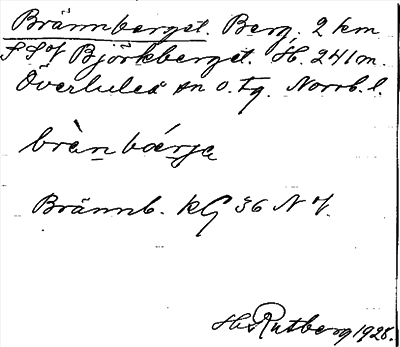 Brännberget. Berg, 2 km
SSV Björkberget. H. 241 m.
Överluleå sn o. tg. Norrb. l.
brànbárja
Brännb. kG 36 NV.
Hs Rutberg 1928.